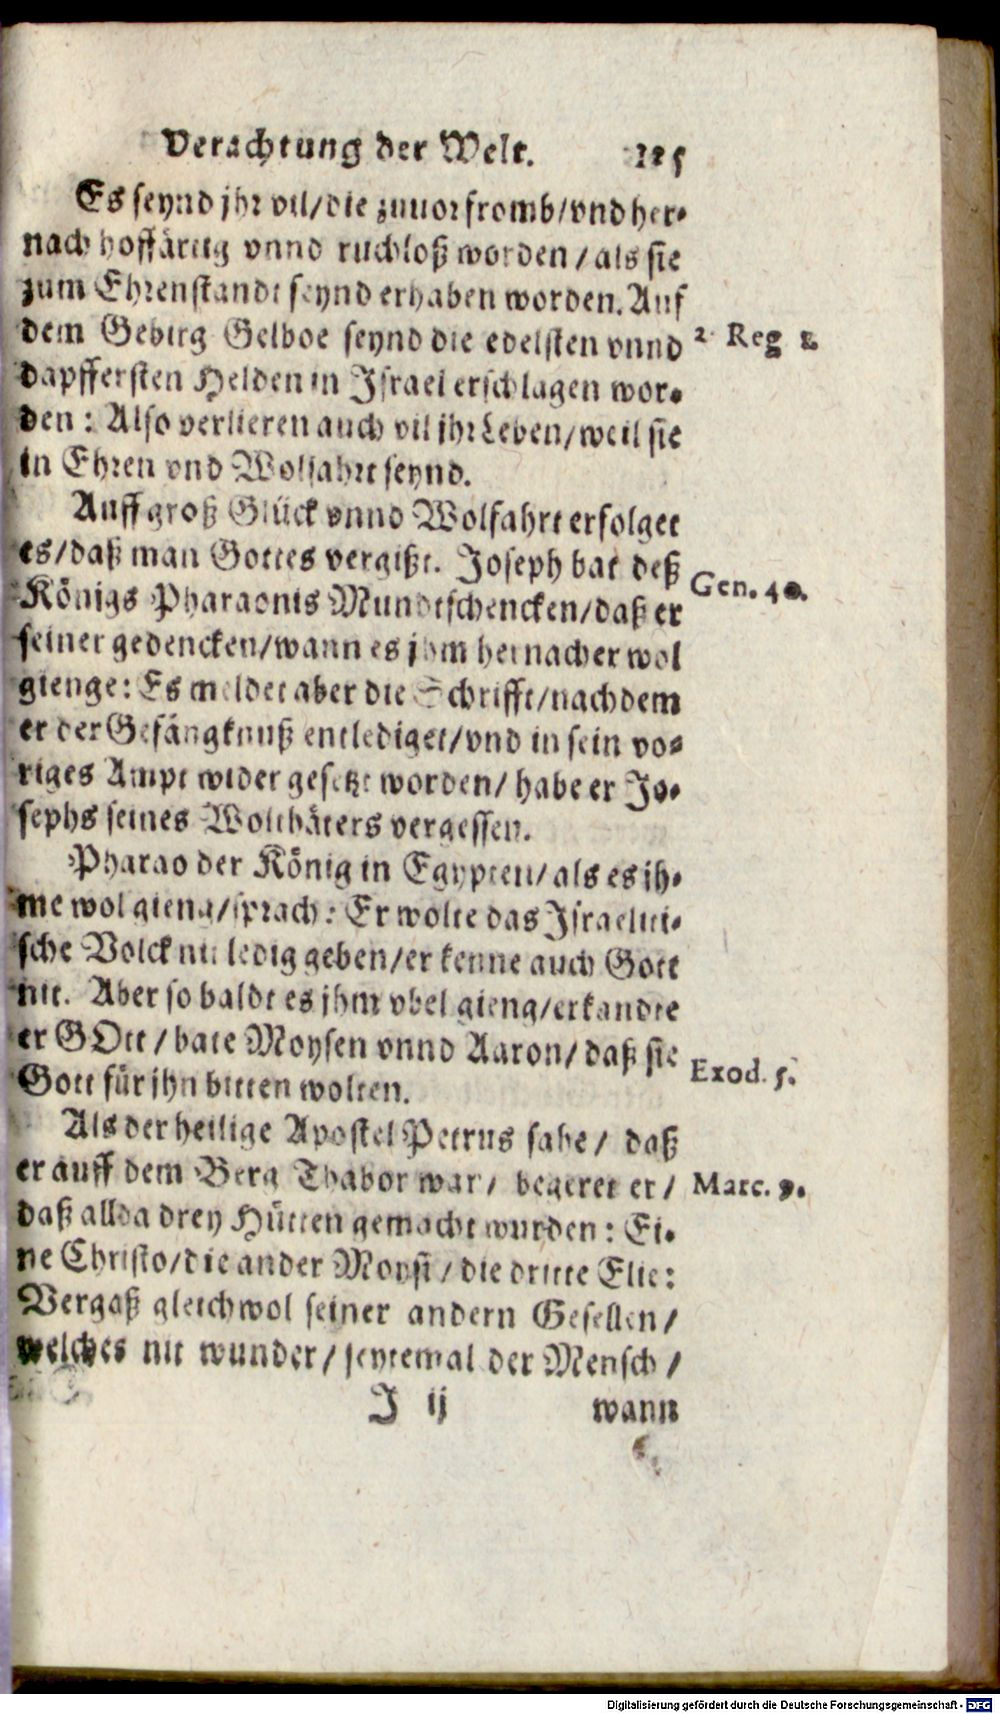 Verachtung der Welt.
Es seynd jhr vil/die zuuor fromb/vnd her-
nach hoffärtig vnnd ruchloß worden/als sie
zum Ehrenstandt seynd erhaben worden. Auf
dem Gebirg Gelboe seynd die edelsten vnnd
2. Reg 1.
dapffersten Helden in Israel erschlagen wor-
den: Also verlieren auch vil jhr Leben/weil sie
in Ehren vnd Wolfahrt seynd.
Auff groß Glück vnnd Wolfahrt erfolget
es/daß man Gottes vergißt. Joseph bat deß
Gen. 40.
Königs Pharaonis Mundtschencken/daß er
seiner gedencken/wann es jhm hernacher wol
gienge: Es meldet aber die Schrifft/nachdem
er der Gefängknuß entlediget/vnd in sein vo-
riges Ampt wider gesetzt worden/habe er Jo-
sephs seines Wolthäters vergessen.
Pharao der König in Egypten/als es jh-
me wol gieng/sprach: Er wolte das Israeliti-
sche Volck nit ledig geben/er kenne auch Gott
nit. Aber so baldt es jhm vbel gieng/erkandte
er GOtt/bate Moysen vnnd Aaron/daß sie
Exod. 5.
Gott für jhn bitten wolten.
Als der heilige Apostel Petrus sahe/ daß
er auff dem Berg Thabor war/ begeret er/
Marc. 9.
daß allda drey Hütten gemacht wurden: Ei-
ne Christo/die ander Moysi/die dritte Elie:
Vergaß gleichwol seiner andern Gesellen/
welches nit wunder/seytemal der Mensch/
J ij
wann
Digitalisierung gefördert durch die Deutsche Forschungsgemeinschaft - DFG